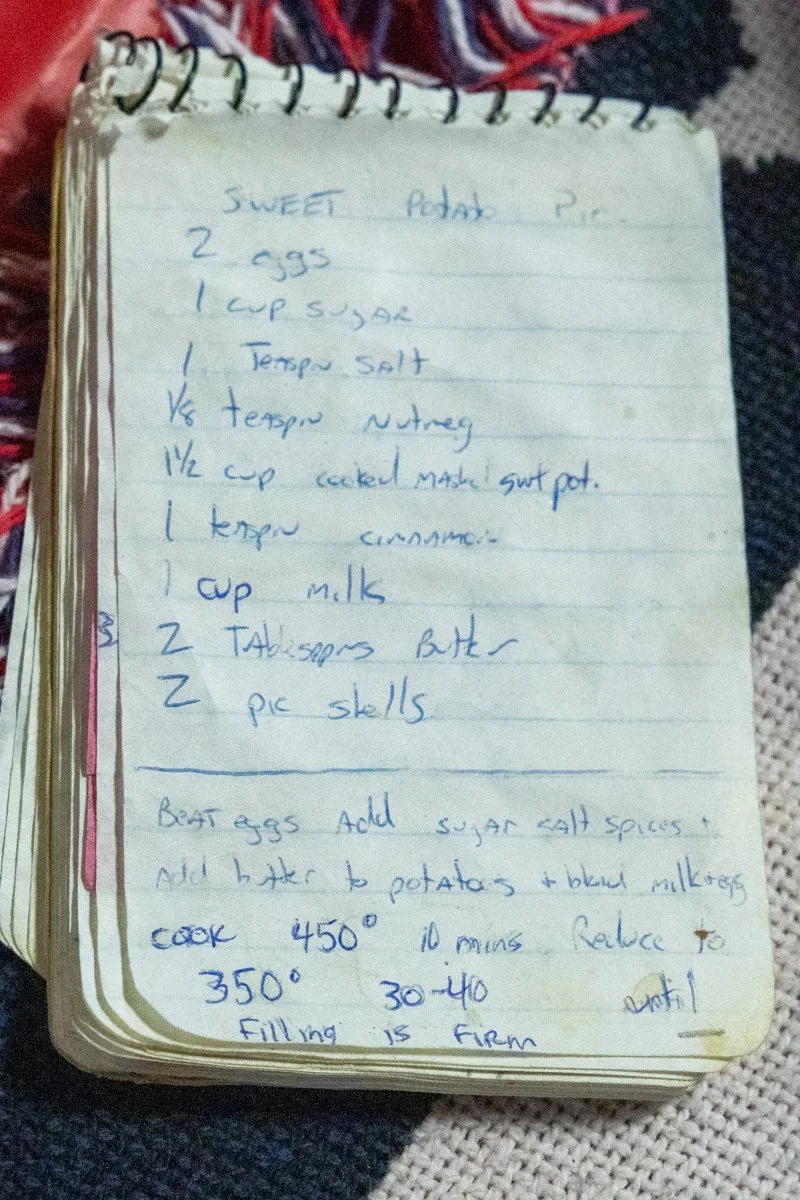 SWEET Potato Pie
2 eggs
1 cup sugar
1 Teaspn salt
1/8 teaspn Nutmeg
1 1/2 cup cooked mash swt pot.
1 teaspn cinnamon
1 cup milk
2 Tablespns Butter
2 pie shells
Beat eggs Add sugar salt spices +
Add butter to potatoes + blend milk + egg
cook 450° 10 mins Reduce to
350° 30-40 until
Filling is Firm